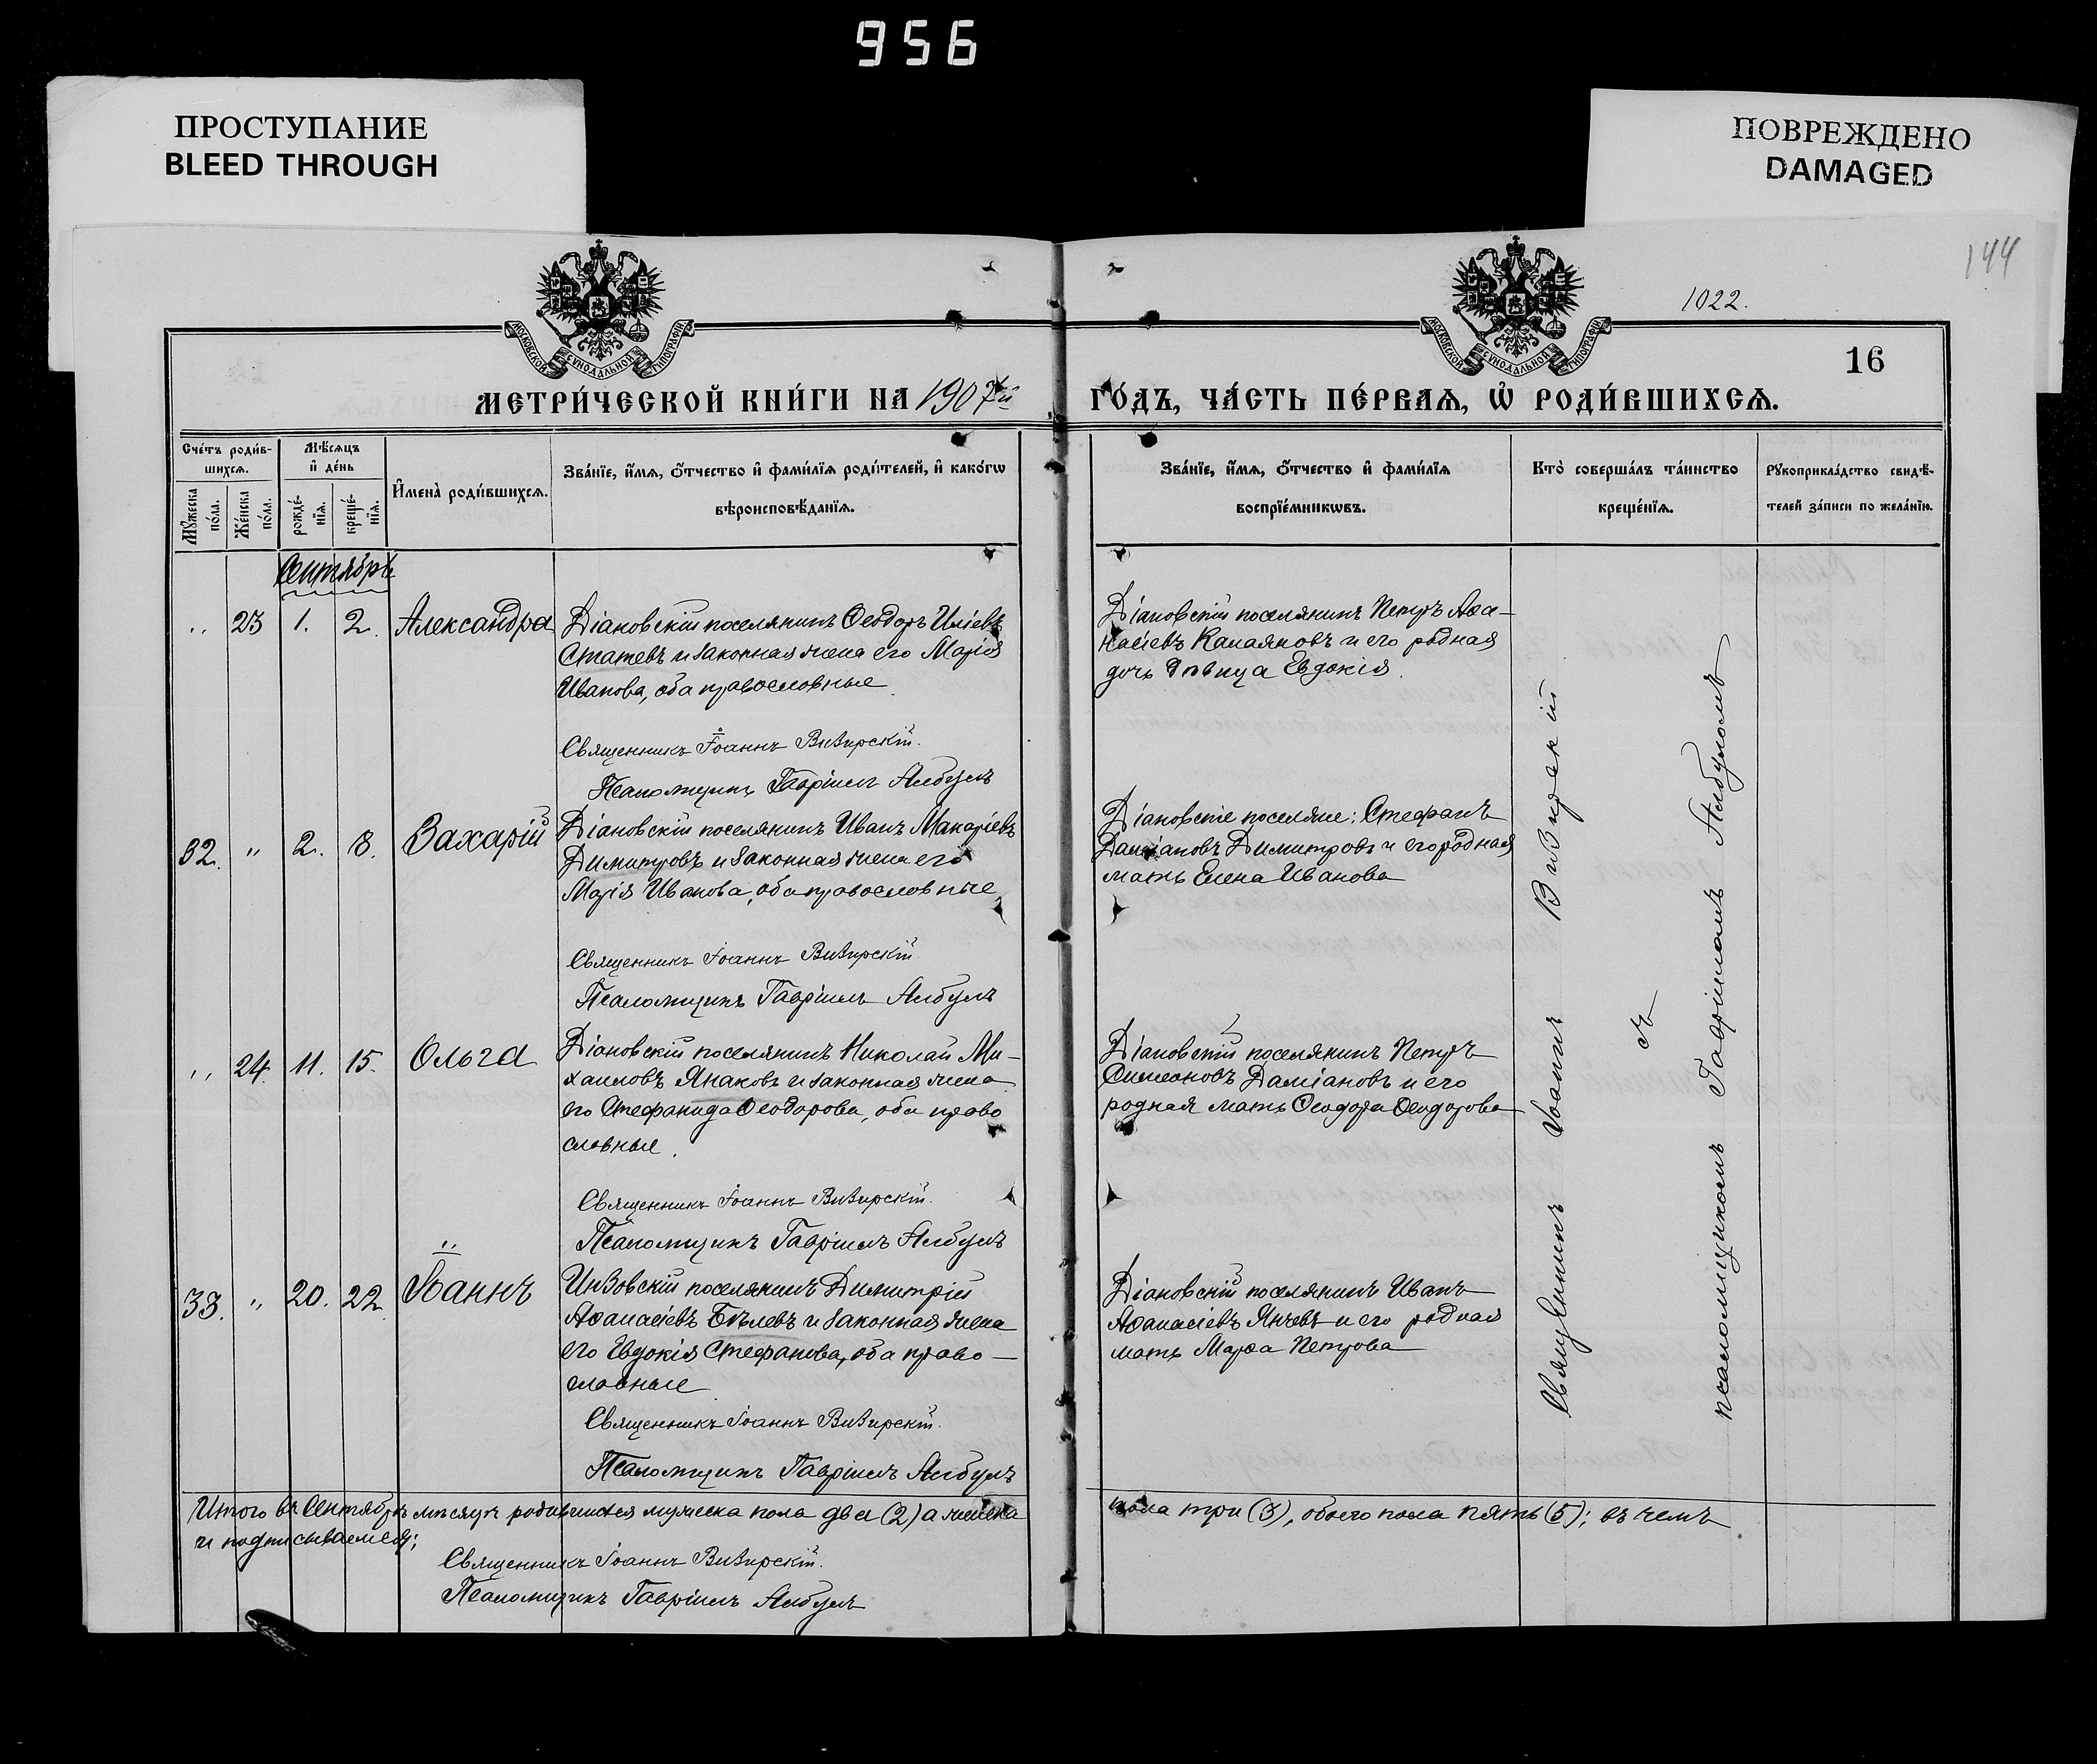 956
ПРОСТУПАНИЕ
BLEED THROUGH
ПОВРЕЖДЕНО
DAMAGED
144
1022.
16
МОСКОВСКОЙ СѴНОДАЛЬНОЙ ТИПОГРАФІИ
МОСКОВСКОЙ СѴНОДАЛЬНОЙ ТИПОГРАФІИ
МЕТРИ́ЧЕСКОЙ КНИ́ГИ НА 1907й ГО́ДЪ, ЧА́СТЬ ПЕ́РВАѦ, Ѡ҆ РОДИ́ВШИХСѦ.
Сче́тъ роди́в-
шихсѧ.
Мꙋ́жеска по́ла.
Же́нска по́ла.
Мѣ́сѧцъ
и҆ де́нь
рожде́-
нїѧ.
креще́-
нїѧ.
И҆мена̀ роди́вшихсѧ.
Зва́нїе, и҆́мѧ, ѻ҆́тчество и҆ фами́лїѧ роди́телей, и҆ како́гѡ
вѣроисповѣ́данїѧ.
Зва́нїе, и҆́мѧ, ѻ҆́тчество и҆ фами́лїѧ
воспрїе́мникѡвъ.
Кто̀ соверша́лъ та́инство
креще́нїѧ.
Рꙋкоприкла́дство свидѣ́-
телей за́писи по жела́нїю.
Сентябрь
„ 23 1. 2. Александра
Діановскій поселянинъ Ѳеодоръ Иліевъ
Статевъ и законная жена его Марія
Иванова, оба православные.
Священникъ Іоаннъ Визирскій.
Псаломщикъ Гавріилъ Албулъ
Діановскій поселянинъ Петръ Аѳа-
насіевъ Калаяновъ и его родная
дочь дѣвица Евдокія.
32. „ 2. 8. Захарій
Діановскій поселянинъ Иванъ Макаріевъ
Димитровъ и законная жена его
Марія Иванова, оба православные
Священникъ Іоаннъ Визирскій
Псаломщикъ Гавріилъ Албулъ
Діановскіе поселяне: Стефанъ
Даміановъ Димитровъ и его родная
мать Елена Иванова
„ 24. 11. 15. Ольга
Діановскій поселянинъ Николай Ми-
хаиловъ Янаковъ и законная жена
его Стефанида Ѳеодорова, оба право
славные.
Священникъ Іоаннъ Визирскій.
Псаломщикъ Гавріилъ Албулъ
Діановскій поселянинъ Петръ
Симеоновъ Даміановъ и его
родная мать Ѳеодора Ѳеодорова
33. „ 20. 22. Іоаннъ
Инзовскій поселянинъ Димитрій
Аѳанасіевъ Бѣлевъ и законная жена
его Евдокія Стефанова, оба право-
славные
Священникъ Іоаннъ Визирскій.
Псаломщикъ Гавріилъ Албулъ
Діановскій поселянинъ Иванъ
Аѳанасіевъ Янчевъ и его родная
мать Марѳа Петрова
Священникъ Іоаннъ Визирскій
съ
псаломщикомъ Гавріиломъ Албуломъ
Итого въ Сентябрѣ мѣсяцѣ родившихся мужеска пола два (2) а женска
пола три (3), обоего пола пять (5); въ чемъ
и подписываемся;
Священникъ Іоаннъ Визирскій.
Псаломщикъ Гавріилъ Албулъ